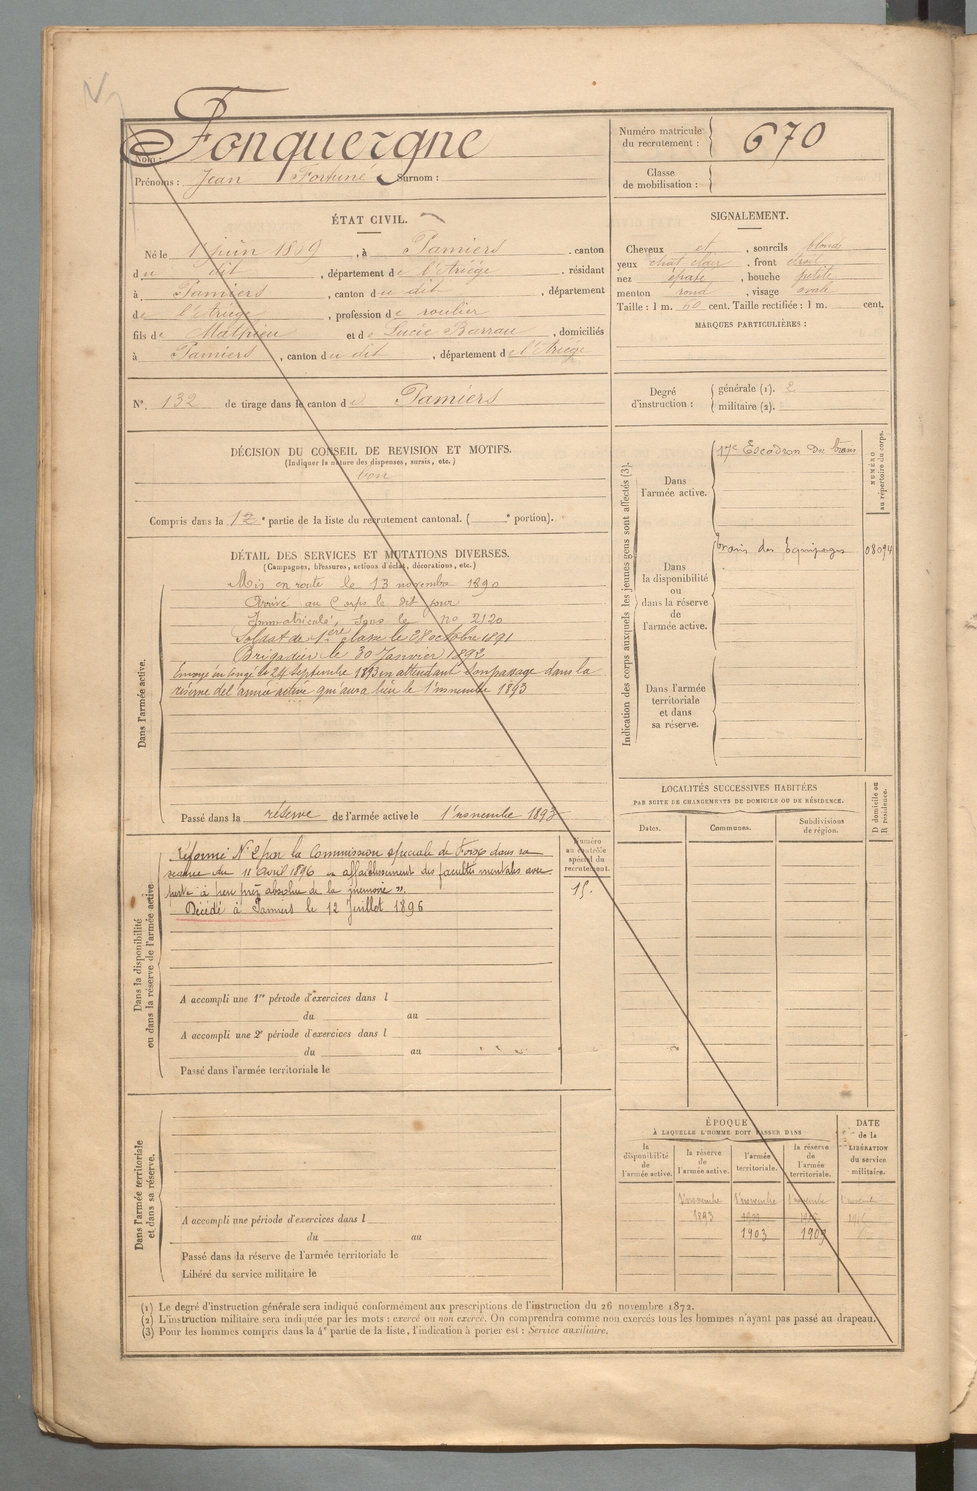 Nom : Fonquergne
Prénoms : Jean Fortuné Surnom :
Numéro matricule du recrutement : 670
Classe de mobilisation :
ÉTAT CIVIL.
Né le 1 juin 1869, à Pamiers, canton
du dit, département de l'Ariège, résidant
à Pamiers, canton du dit, département
de l'Ariège, profession de roulier
fils de Mathieu et de Lucie Barrau, domiciliés
à Pamiers, canton du dit, département de l'Ariège
N° 132 de tirage dans le canton de Pamiers
SIGNALEMENT.
Cheveux et, sourcils blond
yeux chat clair, front étroit
nez épaté, bouche petite
menton rond, visage ovale
Taille : 1 m. 60 cent. Taille rectifiée : 1 m. cent.
MARQUES PARTICULIÈRES :
Degré d'instruction : générale (1). 2
militaire (2).
DÉCISION DU CONSEIL DE REVISION ET MOTIFS.
(Indiquer la nature des dispenses, sursis, etc.)
bon
Compris dans la 1e partie de la liste du recrutement cantonal. ( e portion).
DÉTAIL DES SERVICES ET MUTATIONS DIVERSES.
(Campagnes, blessures, actions d'éclat, décorations, etc.)
Dans l'armée active.
Mis en route le 13 novembre 1890
Arrivé au Corps le dit jour
Immatriculé, sous le no 2120
Soldat de 1ère classe le 28 octobre 1891
Brigadier le 30 Janvier 1892
Envoyé en congé le 24 Septembre 1893 en attendant son passage dans la
réserve de l'armée active qui aura lieu le 1er novembre 1893
Passé dans la réserve de l'armée active le 1er novembre 1893
Indication des corps auxquels les jeunes gens sont affectés (3).
NUMÉRO au répertoire du corps.
Dans l'armée active.
17e Escadron du train
Dans la disponibilité ou dans la réserve de l'armée active.
train des Equipages 08094
Dans l'armée territoriale et dans sa réserve.
Dans la disponibilité ou dans la réserve de l'armée active
Réformé N° 2 par la Commission spéciale de Foix dans sa
séance du 11 avril 1896 « affaiblissement des facultés mentales avec
perte à peu près absolue de la mémoire ».
Décédé à Pamiers le 12 Juillet 1896
Numéro au contrôle spécial du recrutement.
15.
A accompli une 1re période d'exercices dans l
du au
A accompli une 2e période d'exercices dans l
du au
Passé dans l'armée territoriale le
LOCALITÉS SUCCESSIVES HABITÉES
PAR SUITE DE CHANGEMENTS DE DOMICILE OU DE RÉSIDENCE.
Dates. Communes. Subdivisions de région. D domicile ou R résidence.
Dans l'armée territoriale et dans sa réserve.
A accompli une période d'exercices dans l
du au
Passé dans la réserve de l'armée territoriale le
Libéré du service militaire le
ÉPOQUE
À LAQUELLE L'HOMME DOIT PASSER DANS
la disponibilité de l'armée active.
la réserve de l'armée active.
l'armée territoriale.
la réserve de l'armée territoriale.
DATE de la LIBÉRATION du service militaire.
1er novembre 1er novembre 1er novembre
1893
1903 1909
(1) Le degré d'instruction générale sera indiqué conformément aux prescriptions de l'instruction du 26 novembre 1872.
(2) L'instruction militaire sera indiquée par les mots : exercé ou non exercé. On comprendra comme non exercés tous les hommes n'ayant pas passé au drapeau.
(3) Pour les hommes compris dans la 4e partie de la liste, l'indication à porter est : Service auxiliaire.